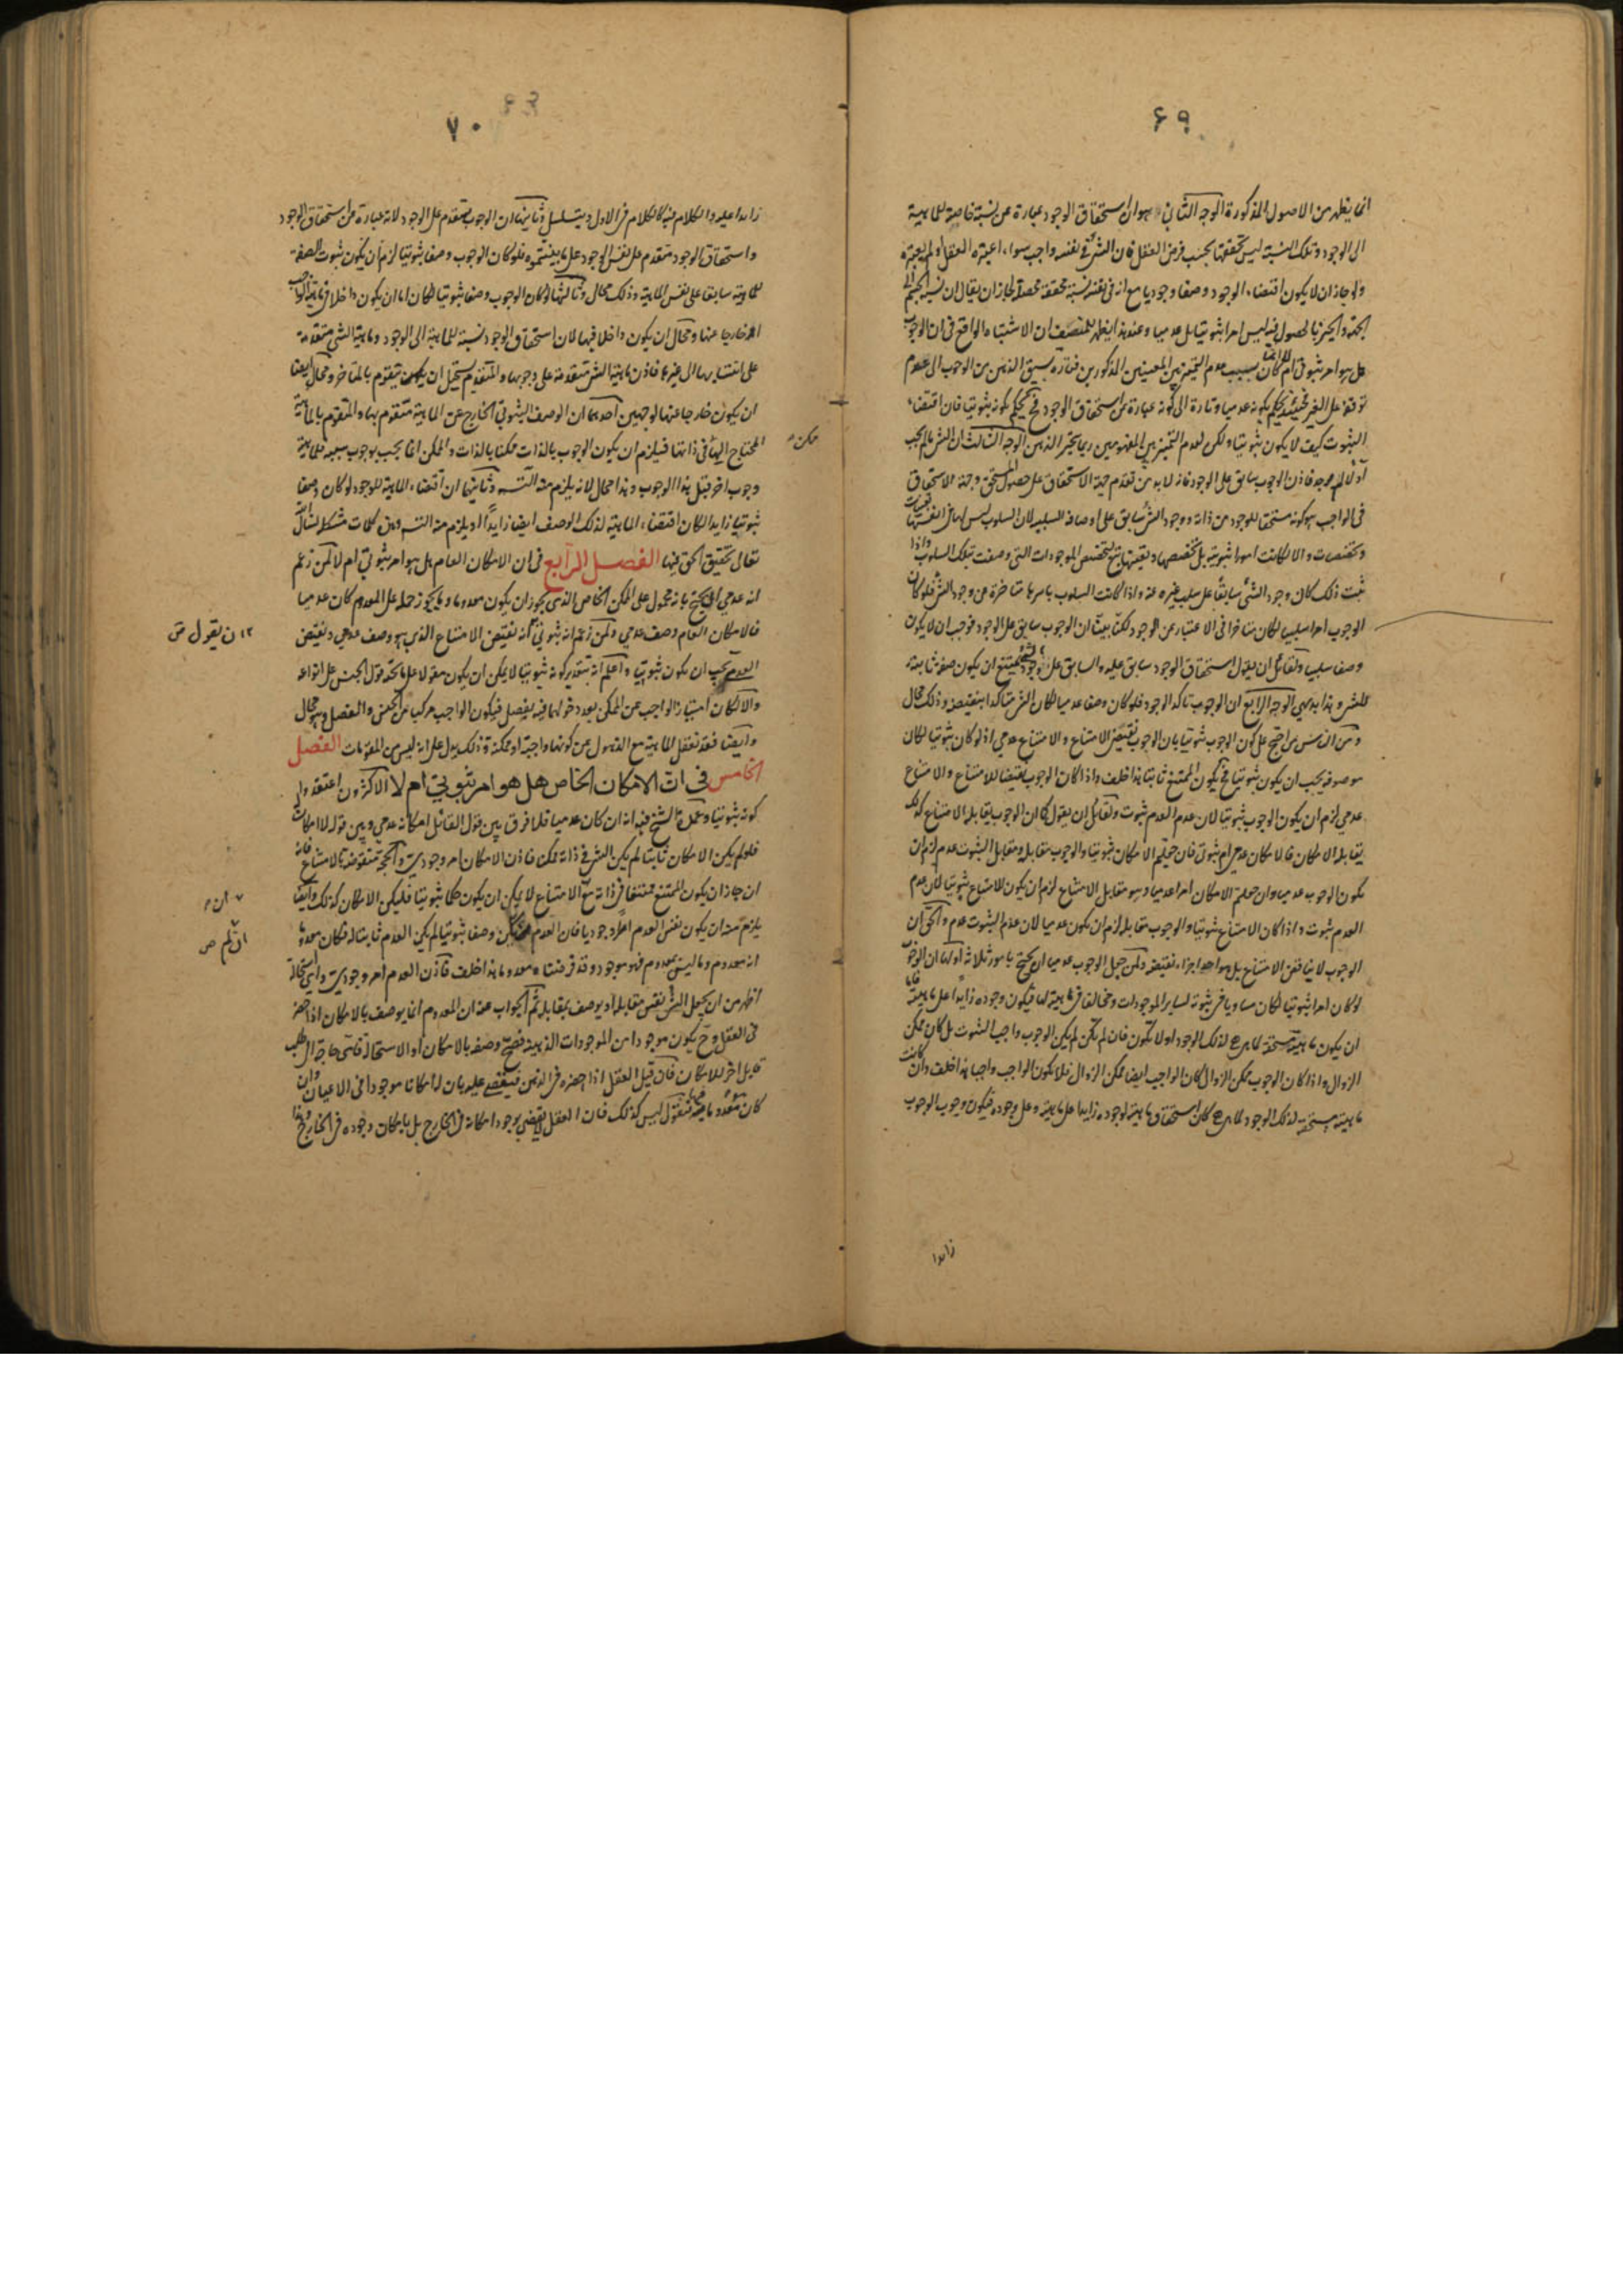 ۶۹
انما يظهر من الاصول المذكورة الوجه الثانى هو ان استحقاق الوجود عبارة عن نسبة خاصة للماهية
الى الوجود وتلك النسبة ليس تحققها بحسب فرض العقل فان الشئ فى نفسه واجب سواء اعتبره العقل او لم يعتبره
ولو جاز ان لا يكون اقتضاء الوجود وصفا وجوديا مع انه فى نفسه نسبة محققة محصلة لجاز ان يقال ان نسبة الجسم الى
الجهة والحيز بالحصول فيه ليس امرا ثبوتيا بل عدميا وعند هذا يظهر للمنصف ان الاشتباه الواقع فى ان الوجوب
هل هو امر ثبوتى ام لا انما كان بسبب عدم التميز بين المعنيين المذكورين فتارة يسبق الذهن من الوجوب الى عدم
توقفه على الغير فحينئذ يحكم بكونه عدميا وتارة الى كونه عبارة عن استحقاق الوجود فح يحكم بكونه ثبوتيا فان اقتضاء
الثبوت كيف لا يكون ثبوتيا ولكن لعدم التميز بين المفهومين ربما يتحير الذهن الوجه الثالث ان الشئ ما لم يجب
اولا لم يوجد فاذن الوجوب سابق على الوجود فانه لابد من تقدم جهة الاستحقاق على حصول المستحق وجهة الاستحقاق
فى الواجب هو كونه مستحقا للوجود من ذاته ووجود الشئ سابق على اوصافه السلبية لان السلوب ليس لها فى انفسها تعينات
وتخصصات والا لكانت امورا ثبوتية بل تخصصها وتعينها تابع لتخصص الموجودات التى وصفت بتلك السلوب واذا
ثبت ذلك كان وجود الشئ سابقا على سلب غيره عنه واذا كانت السلوب باسرها متاخرة عن وجود الشئ فلو كان
الوجوب امرا سلبيا لكان متاخرا فى الاعتبار عن الوجود لكنا بينا ان الوجوب سابق على الوجود فوجب ان لا يكون
وصفا سلبيا ولقائل ان يقول استحقاق الوجود سابق عليه والسابق على وجود الشئ يمتنع ان يكون صفة ثابتة
للشئ وهذا بديهى الوجه الرابع ان الوجوب تاكد الوجود فلو كان وصفا عدميا لكان الشئ متاكدا بنقيضه وذلك محال
ومن الناس من احتج على كون الوجوب ثبوتيا بان الوجوب نقيض الامتناع والامتناع عدمى اذ لو كان ثبوتيا لكان
موصوفه يجب ان يكون ثبوتيا فح يكون الممتنع ثابتا هذا خلف واذا كان الوجوب نقيضا للامتناع والامتناع
عدمى لزم ان يكون الوجوب ثبوتيا لان عدم العدم ثبوت ولقائل ان يقول كما ان الوجوب يقابله الامتناع كذلك
يقابله الامكان فالامكان عدمى ام ثبوتى فان جعلتم الامكان ثبوتيا والوجوب مقابله ومقابل الثبوت عدم لزم ان
يكون الوجوب عدميا وان جعلتم الامكان امرا عدميا وهو مقابل الامتناع لزم ان يكون الامتناع ثبوتيا لان عدم
العدم ثبوت واذا كان الامتناع ثبوتيا والوجوب مقابله لزم ان يكون عدميا لان عدم الثبوت عدم والحق ان
الوجوب لا يناقض الامتناع بل هو احد اجزاء نقيضه ومن جعل الوجوب عدميا احتج بامور ثلاثة اولها ان الوجوب
لو كان امرا ثبوتيا لكان مساويا فى ثبوته لساير الموجودات ومخالفا فى ماهيته لها فيكون وجوده زايدا على ماهيته فاما
ان يكون ماهيته مستحقة لما هى هى لذلك الوجود او لا تكون فان لم تكن لم يكن الوجوب واجب الثبوت بل كان ممكن
الزوال واذا كان الوجوب ممكن الزوال كان الواجب ايضا ممكن الزوال فلا يكون الواجب واجبا هذا خلف وان كانت
ماهيته مستحقة لذلك الوجود لما هى هى كان استحقاق ماهيته لوجوده زايدا على ماهيته وعلى وجوده فيكون وجوب الوجوب
زايدا
۷۰
زايدا عليه والكلام فيه كالكلام فى الاول ويتسلسل وثانيها ان الوجوب متقدم على الوجود لانه عبارة عن استحقاق الوجود
واستحقاق الوجود متقدم على نفس الوجود على ما بينتموه فلو كان الوجوب وصفا ثبوتيا لزم ان يكون ثبوت الصفة
للماهية سابقا على نفس الماهية وذلك محال وثالثها لو كان الوجوب وصفا ثبوتيا لكان اما ان يكون داخلا فى ماهية الواجب
او خارجا عنها ومحال ان يكون داخلا فيها لان استحقاق الوجود نسبة للماهية الى الوجود وماهية الشئ متقدمة
على انتسابها الى غيرها فاذن ماهية الشئ متقدمة على وجوبها والمتقدم يستحيل ان يتقوم بالمتاخر ومحال ايضا
ان يكون خارجا عنها لوجهين احدهما ان الوصف الثبوتى الخارج عن الماهية متقوم بها والمتقوم بالماهية
المحتاج اليها فى ذاتها فيلزم ان يكون الوجوب بالذات ممكنا بالذات والممكن انما يجب بوجوب سببه فللماهية
ممكن
وجوب اخر قبل هذا الوجوب وهذا محال لانه يلزم منه التسلسل وثانيهما ان اقتضاء الماهية للوجود لو كان وصفا
ثبوتيا زايدا لكان اقتضاء الماهية لذلك الوصف ايضا زايدا ويلزم منه التسلسل وهى كلمات مشكلة نسأل الله
تعالى تحقيق الحق فيها الفصل الرابع فى ان الامكان العام هل هو امر ثبوتى ام لا من زعم
انه عدمى احتج بانه محمول على الممكن الخاص الذى يجوز ان يكون معدوما وما يجوز حمله على المعدوم كان عدميا
فالامكان العام وصف عدمى ومن زعم انه ثبوتى انه نقيض الامتناع الذى هو وصف عدمى ونقيض
ن يقول ص
العدم يجب ان يكون ثبوتيا واعلم انه بتقدير كونه ثبوتيا لا يمكن ان يكون مقولا على ما تحته قول الجنس على انواعه
والا لكان امتياز الواجب عن الممكن بعد دخولهما فيه بفصل فيكون الواجب مركبا من الجنس والفصل وهو محال
وايضا فقد نعقل الماهية مع الذهول عن كونها واجبة او ممكنة وذلك يدل على انه ليس من المقومات الفصل
الخامس فى ان الامكان الخاص هل هو امر ثبوتى ام لا الاكثرون اعتقدوا
كونه ثبوتيا وعمدة الشيخ فيه انه ان كان عدميا فلا فرق بين قول القائل امكانه عدمى وبين قوله لا امكان
فلو لم يكن الامكان ثابتا لم يكن الشئ فى ذاته ممكنا فاذن الامكان امر وجودى والحجة منقوضة بالامتناع فانه
ان جاز ان يكون الممتنع ممتنعا فى ذاته مع الامتناع لا يمكن ان يكون حكما ثبوتيا فليكن الامكان كذلك وايضا
ان
يلزم منه ان يكون نفس العدم امرا وجوديا فان العدم ان لم يكن وصفا ثبوتيا لم يكن العدم ثابتا له فكان معدوما
ان لم ص
انه معدوم وما ليس بمعدوم فهو موجود وقد فرضناه معدوما هذا خلف فاذن العدم امر وجودى واى استحالة
اظهر من ان يجعل الشئ نفس مقابله او يوصف بمقابله ثم الجواب عنه ان المعدوم انما يوصف بالامكان اذا حضر
فى العقل وح يكون موجودا من الموجودات الذهنية فصح وصفه بالامكان او الاستحالة فاى حاجة الى طلب
قابل اخر للامكان فان قيل العقل اذا احضره فى الذهن فيقضى عليه بان له امكانا موجودا فى الاعيان وان
كان معدوما فيها فنقول ليس كذلك فان العقل لا يقضى بوجود امكانه فى الخارج بل بامكان وجوده فى الخارج وهذا